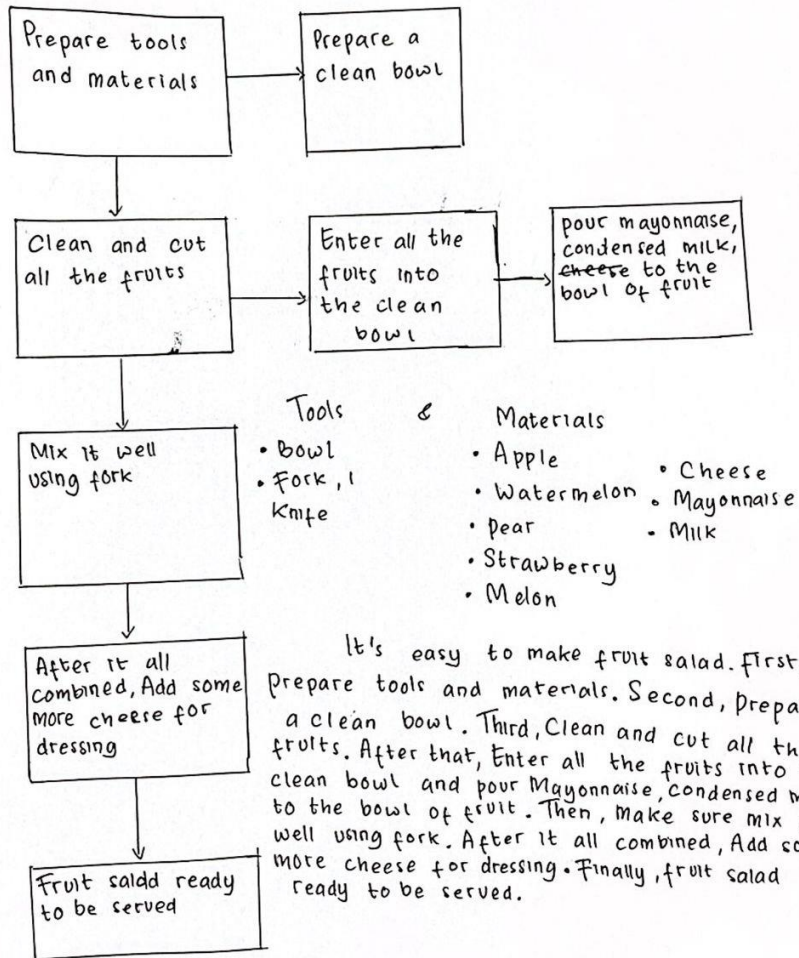 Prepare tools
and materials
Prepare a
clean bowl
Clean and cut
all the fruits
Enter all the
fruits into
the clean
bowl
pour mayonnaise,
condensed milk,
cheese to the
bowl of fruit
Mix it well
using fork
Tools & Materials
• Bowl
• Fork, 1
Knife
• Apple
• Watermelon
• pear
• Strawberry
• Melon
• Cheese
• Mayonnaise
• Milk
After it all
combined, Add some
more cheese for
dressing
Fruit salad ready
to be served
It's easy to make fruit salad. First
Prepare tools and materials. Second,
a clean bowl. Third, Clean and cut all
fruits. After that, Enter all the fruits into
clean bowl and pour Mayonnaise, condensed
to the bowl of fruit. Then, make sure mix
well using fork. After it all combined, Add
more cheese for dressing. Finally, fruit salad
ready to be served.